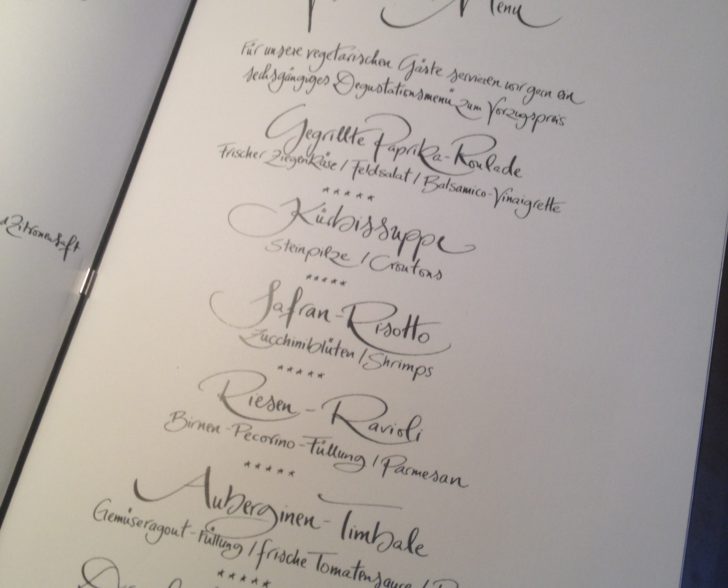 Menu
Für unsere vegetarischen Gäste servieren wir gern ein
sechsgängiges Degustationsmenü zum Vorzugspreis
Gegrillte Paprika-Roulade
Frischer Ziegenkäse / Feldsalat / Balsamico-Vinaigrette
*****
Kürbissuppe
Steinpilze / Croutons
*****
Safran-Risotto
Zucchiniblüten / Shrimps
*****
Riesen-Ravioli
Birnen-Pecorino-Füllung / Parmesan
*****
Auberginen-Timbale
Gemüseragout-Füllung / frische Tomatensauce /
*****
Zitronensaft